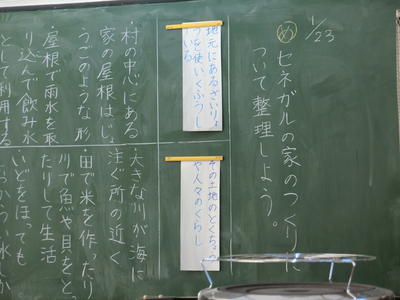 1/23
め セネガルの家のつくりに
ついて整理しよう。
地元にあるざいりょ
うを使いくふうし
ている
その土地のとくちょう
や人々のくらし
・村の中心にある
家の屋根はじょ
うごのような形
・屋根で雨水を取
り込んで飲み水
として利用する
・大きな川が海に
注ぐ所の近く
・田で米を作ったり
川で魚や貝をと
たりして生活
いどをほっても